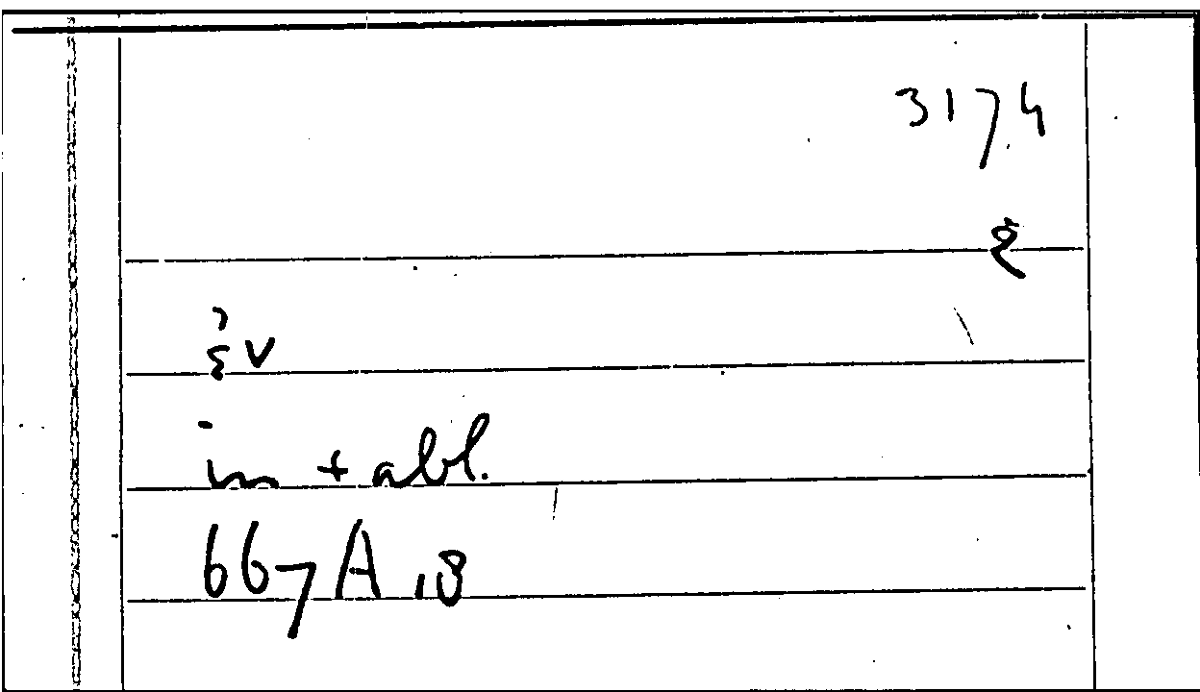 3174
ἐν
in + abl.
667A18